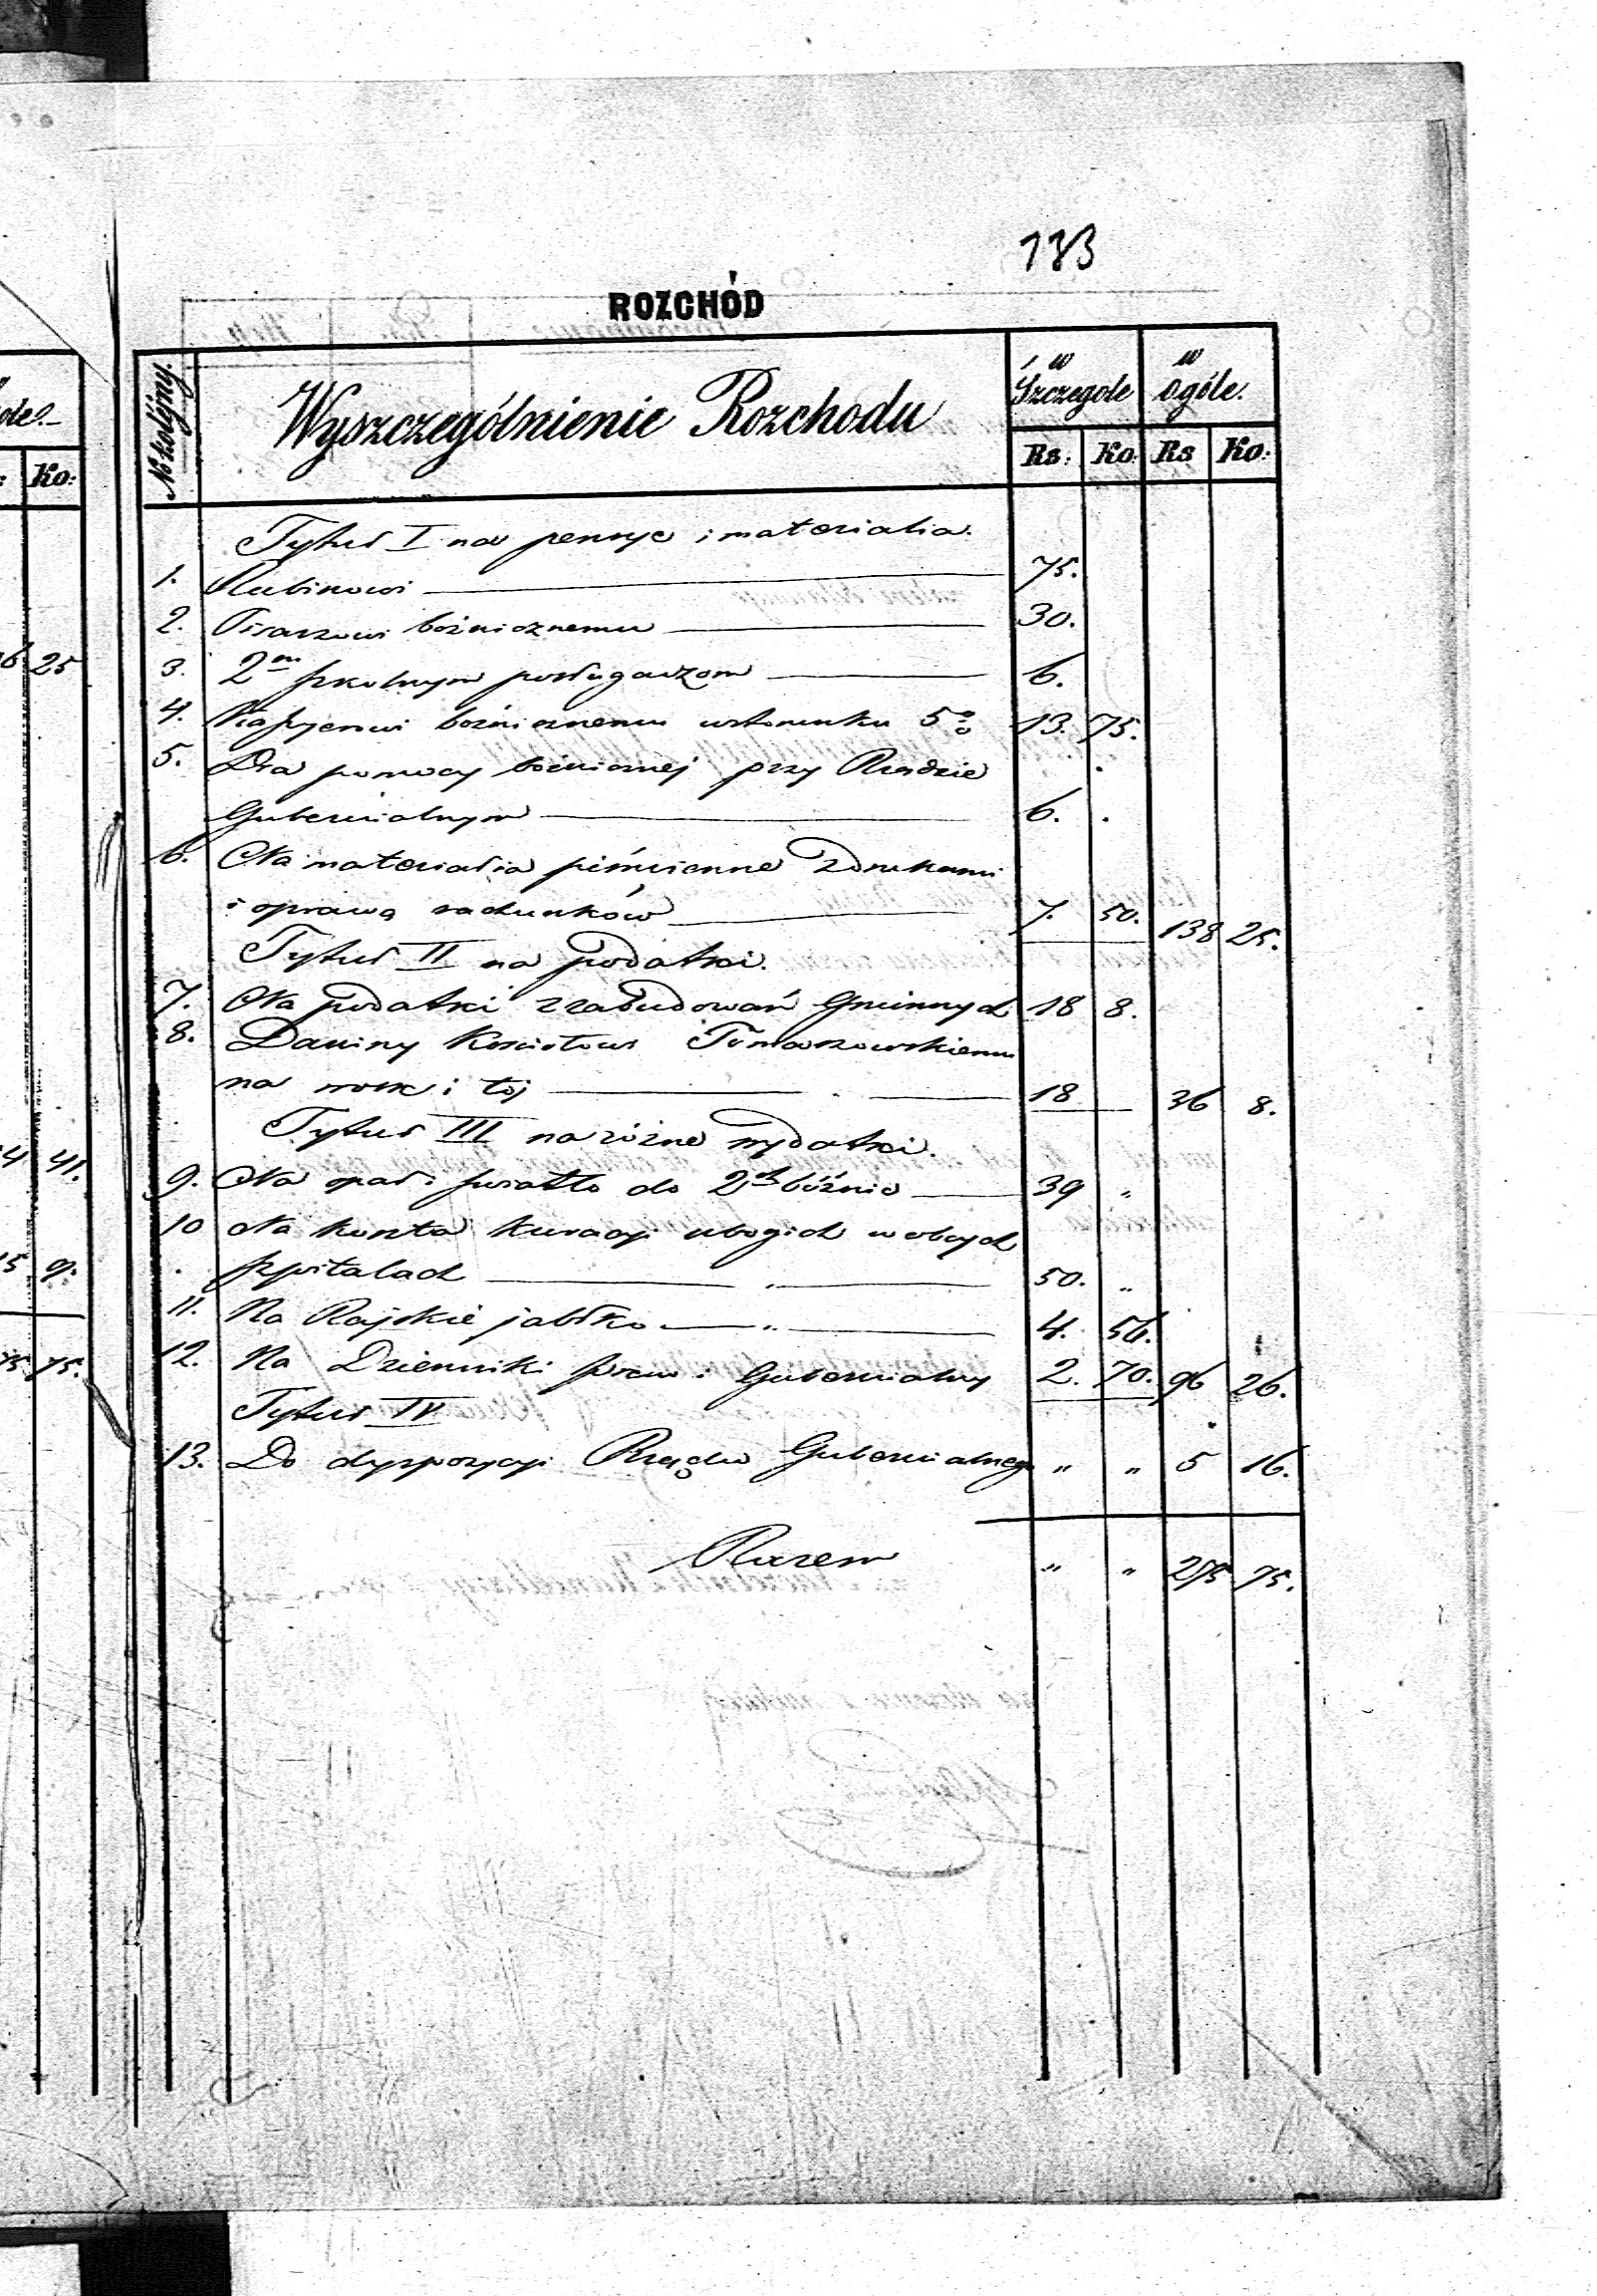 183
ROZCHÓD
No kolejny.
Wyszczególnienie Rozchodu
w Szczegole
w ogóle.
Rs: Ko: Rs Ko:
Tytuł I na pensye i materialia.
1. Rabinowi 75.
2. Pisarzowi bóźnicznemu 30.
3. 2m szkolnym posługaczom 6.
4. Kassyerowi bóźnicznemu w stosunku 5% 13. 75.
5. Dla pomocy bóźnicznej przy Rządzie
Gubernialnym 6. .
6. Na materialia piśmienne z drukami
i oprawą rachunków 7. 50. 138 25.
Tytuł II na podatki.
7. Na podatki z zabudowań Gminnych 18 8.
8. Daniny Kościołowi Tomaszowskiemu
na wosk i łój 18 36 8.
Tytuł III na różne wydatki.
9. Na opał i światło do 2ch bóźnic 39 "
10 Na koszta kuracyi ubogich w obcych
szpitalach " 50. "
11. Na Rajskie jabłko " 4. 56.
12. Na Dzienniki praw i Gubernialny 2. 70. 96 26.
Tytuł IV
13. Do dyspozycyi Rządu Gubernialnego " " 5 16.
Razem " " 275 75.
Ko:
25
41.
9.
75.